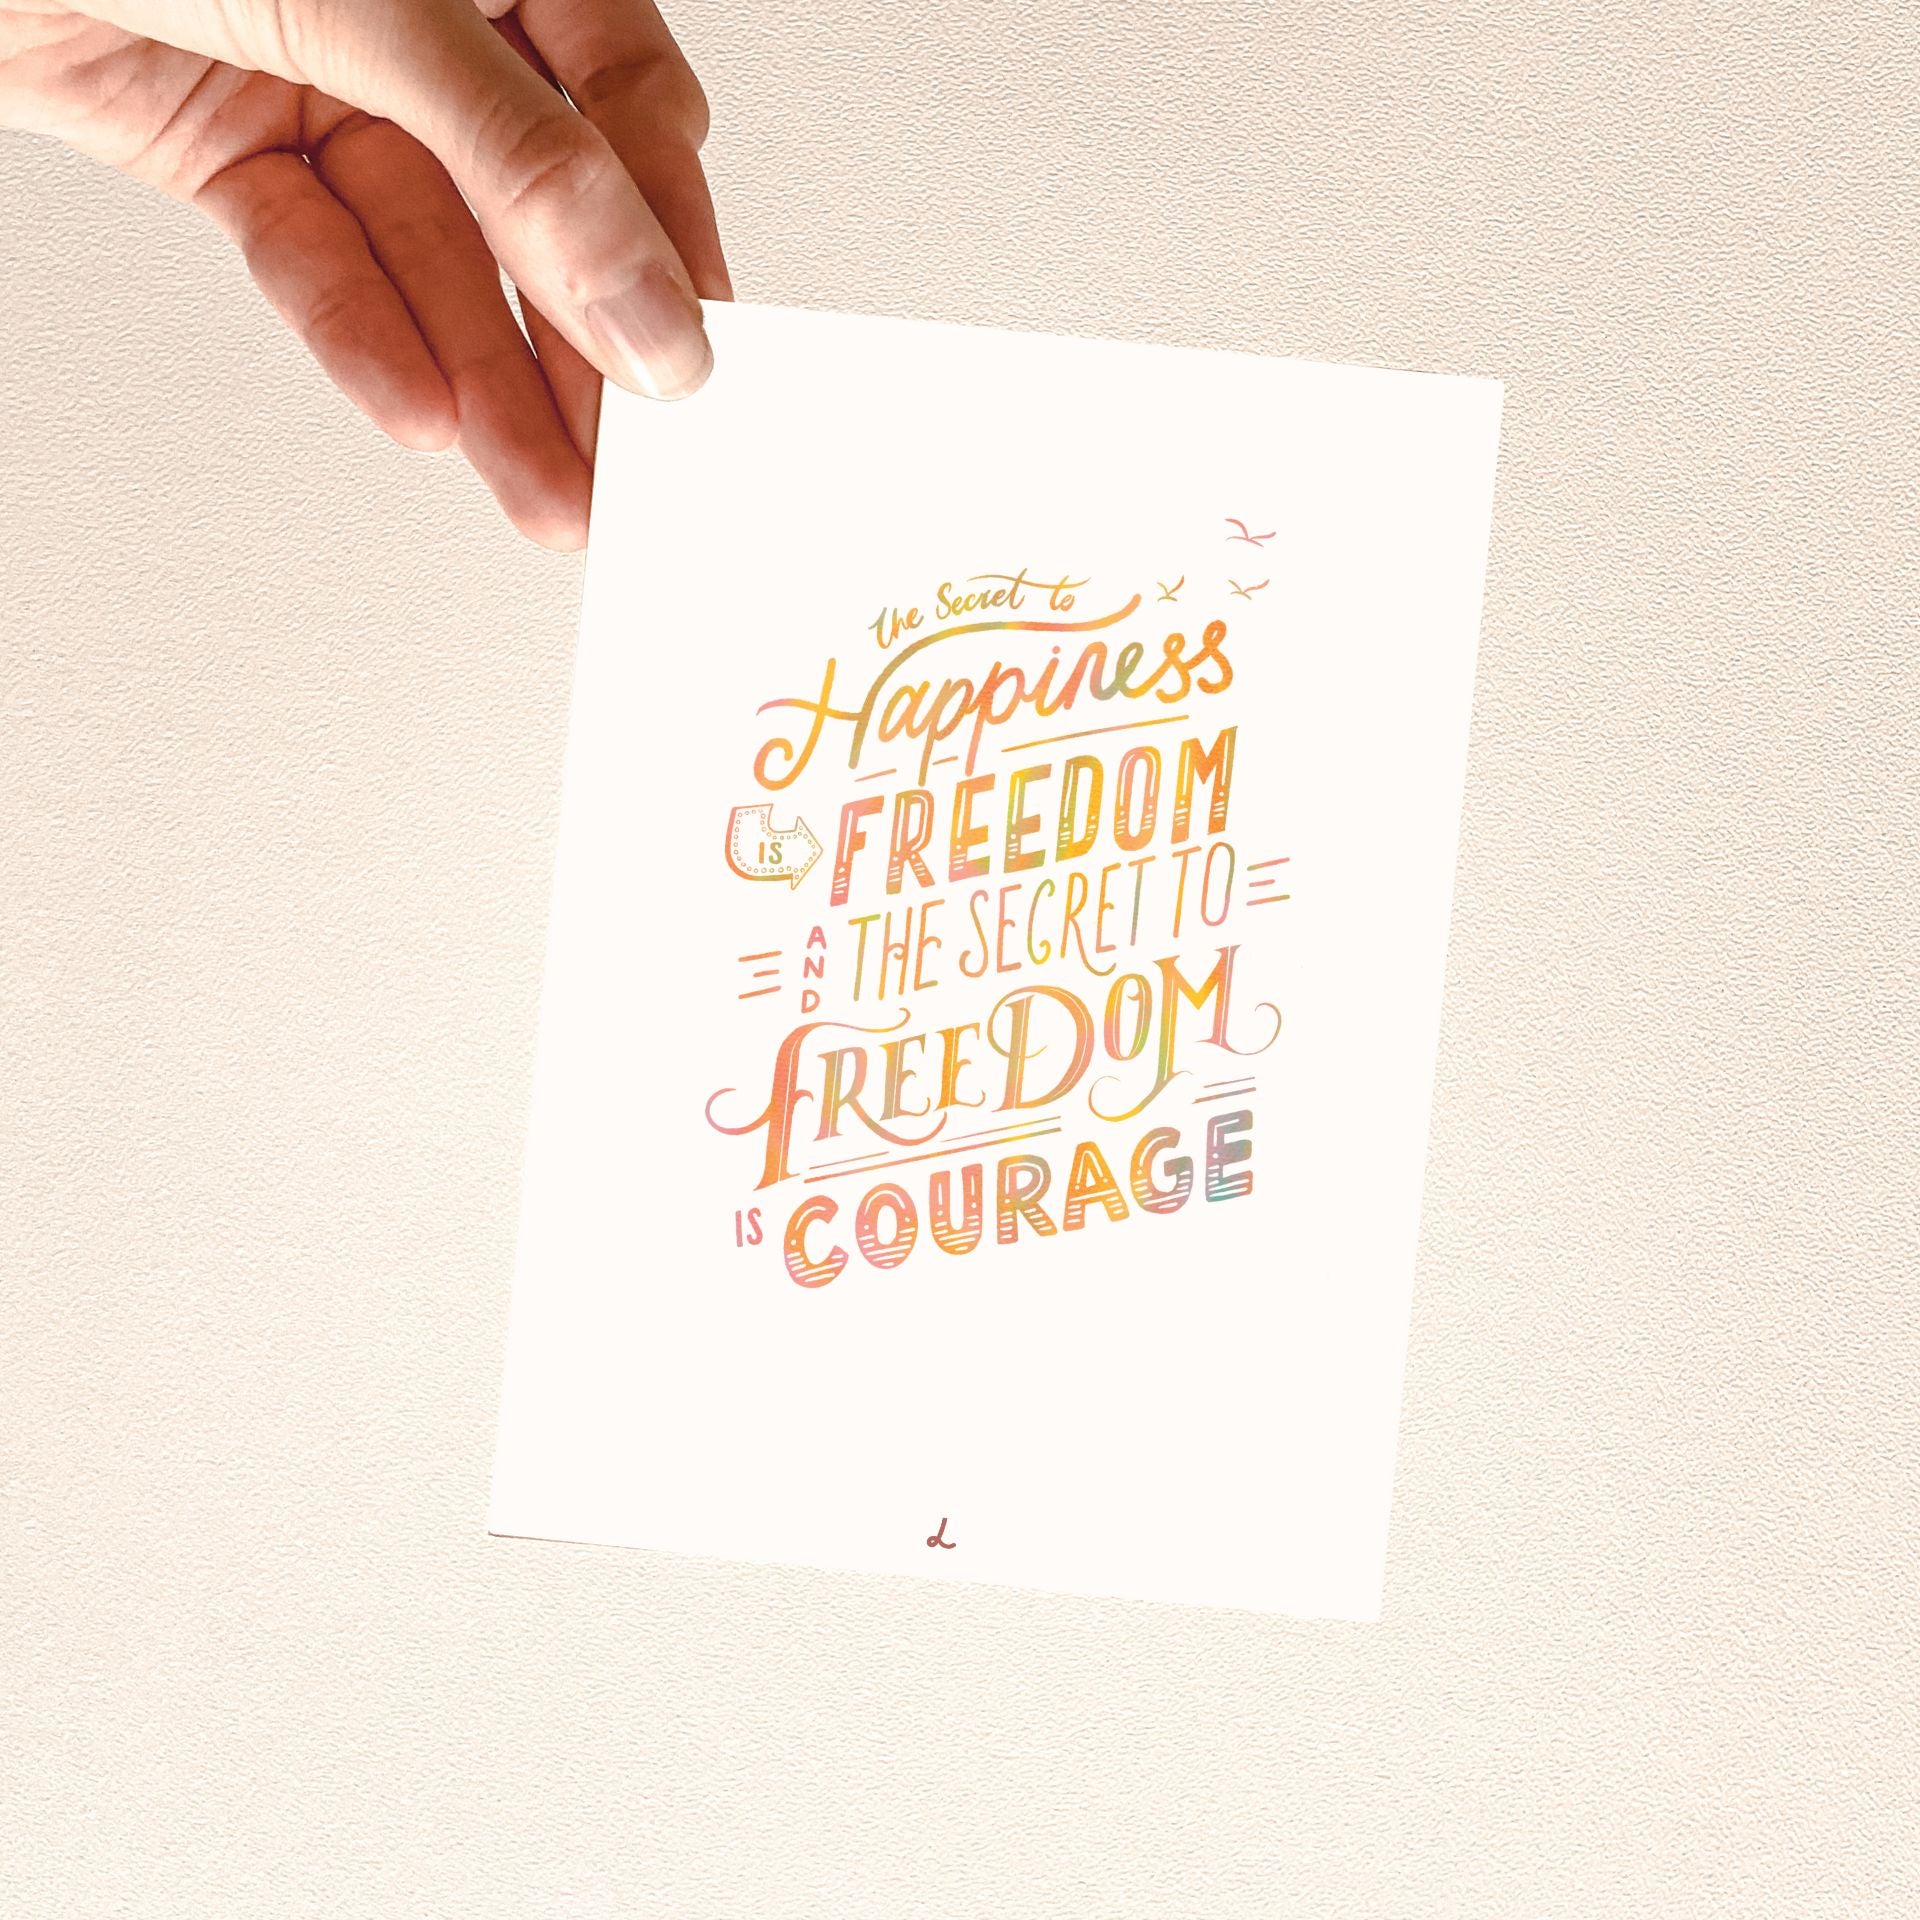 the Secret to
Happiness
IS FREEDOM
AND THE SECRET TO
FREEDOM
IS COURAGE
L